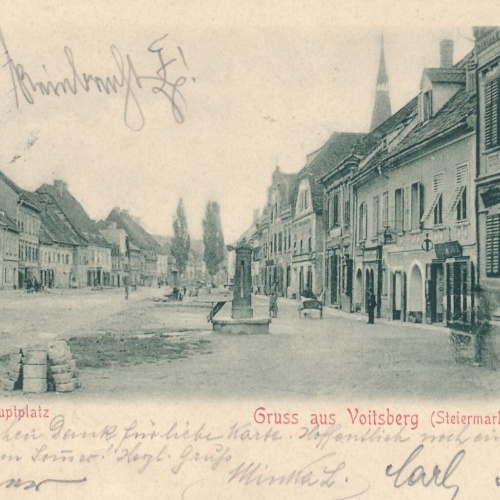 uptplatz
Gruss aus Voitsberg (Steiermark
Dank für liebe Karte. Hoffentlich noch ein
Sommer! Herzl. Gruß
Minka L. Carl